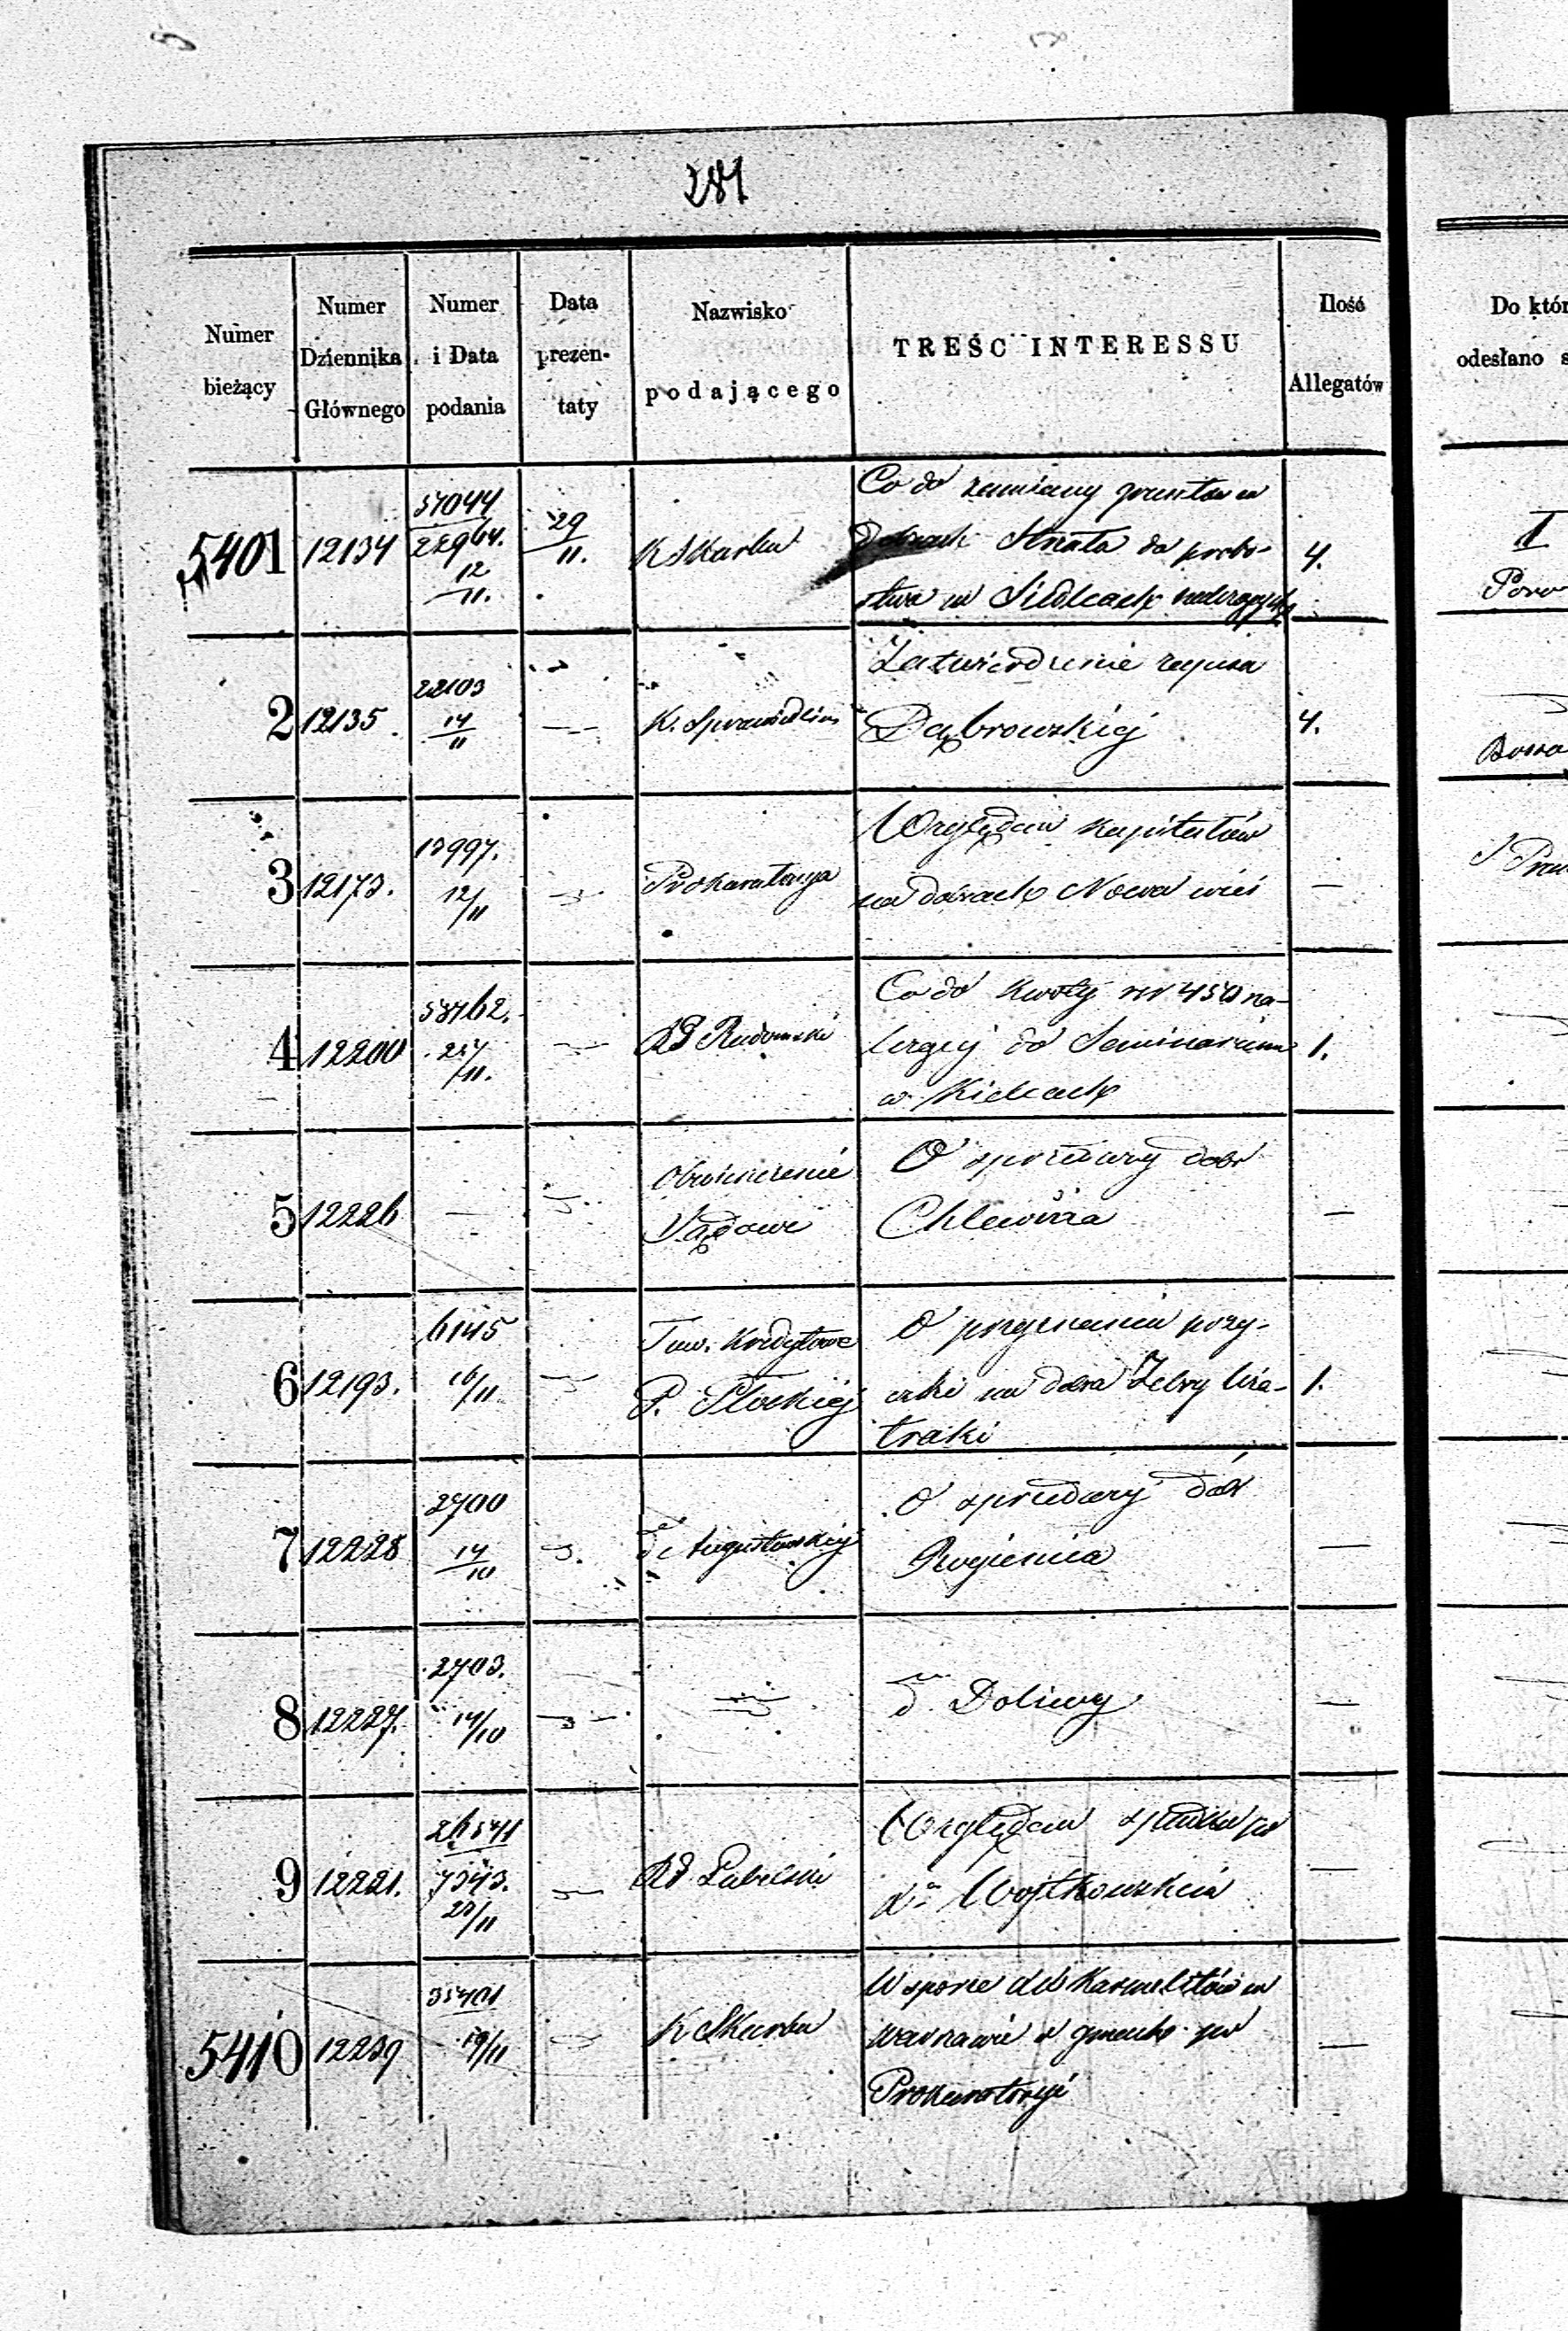 281
Numer bieżący
Numer Dziennika Głównego
Numer i Data podania
Data prezen-taty
Nazwisko podającego
TREŚC INTERESSU
Ilość Allegatów
Do któr
odesłano s
5401 12134 57044 12/11. 29/11. K Skarbu Co do zamiany gruntów w
dobrach Strzała do probo-
stwa w Siedlcach należących 4.
I
2 12135 22103 14/11 — K. Sprawiedliw Zatwierdzenie zapisu
Dąbrowskiej 4.
3 12173. 13997. 12/11 — Prokuratorya Względem kapitałów
na dobrach Nowa wieś —
4 12200 58762. 27/11. — RG Radomski Co do kwoty rsr 450 na-
leżącej do Seminarium
w Kielcach 1.
5 12226 — — Obwieszczenie Sądowe O sprzedaży dobr
Chlewiska —
6 12193. 6145 16/11 — Tow. Kredytowe
P. Płockiej O przyznaniu poży-
czki na dobra Żebry Wia-
traki 1.
7 12228 2700 14/10 — do Augustowskiej O sprzedaży dóbr
Rogienica —
8 12227. 2703. 14/10 — — do Doliwy —
9 12221. 26541 7343. 23/11 — RG Lubelski Względem spadku po
Xs Wojtkowskim —
5410 12239 35401 19/11 — K Skarbu W sporze XX Karmelitów w
Warszawie o gmach po
Prokuratoryi —